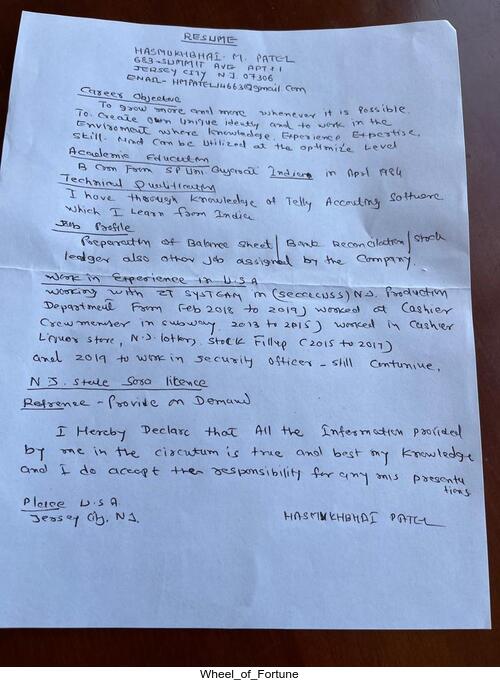 RESUME
HASMUKHBHAI. M. PATEL
683-SUMMIT AVE APT#1
JERSEY CITY N.J 07306
EMAIL- HMPATEL14663@gmail com
Career Objective
To grow more and more whenever it is possible.
To. create own unique identity and to work in the
Enviroment where knowledge, Experience Expertise,
skill. Mind can be utilized at the optimize level
Academic Education
B com From S P Uni- Gujarat India in April 1984
Technical Qualification
I have through knowledge of Telly Accouting Software
which I Learn from India
Job Profile
Preparation of Balance sheet/ Bank Reconcilation/ stock
ledger also other job assigned by the company.
work in Experience in U.S.A
working with IT SYSTEAM in (secaucuss) N.J. Production
Department From Feb 2018 to 2019) worked at cashier
crewmember in subway. 2013 to 2015) worked in cashier
Liquor store, N.J. lottery. stock Fillup (2015 to 2017)
and 2019 to work in security officer - still contunive.
N J. state Sora licence
Refrence - Provide on Demand
I Hereby Declare that All the Information provided
by me in the circutum is true and best my knowledge
and I do accept the responsibility for any mis presenta
tions
Place U.S.A
Jersey City, N.J.
HASMUKHBHAI PATEL
Wheel_of_Fortune